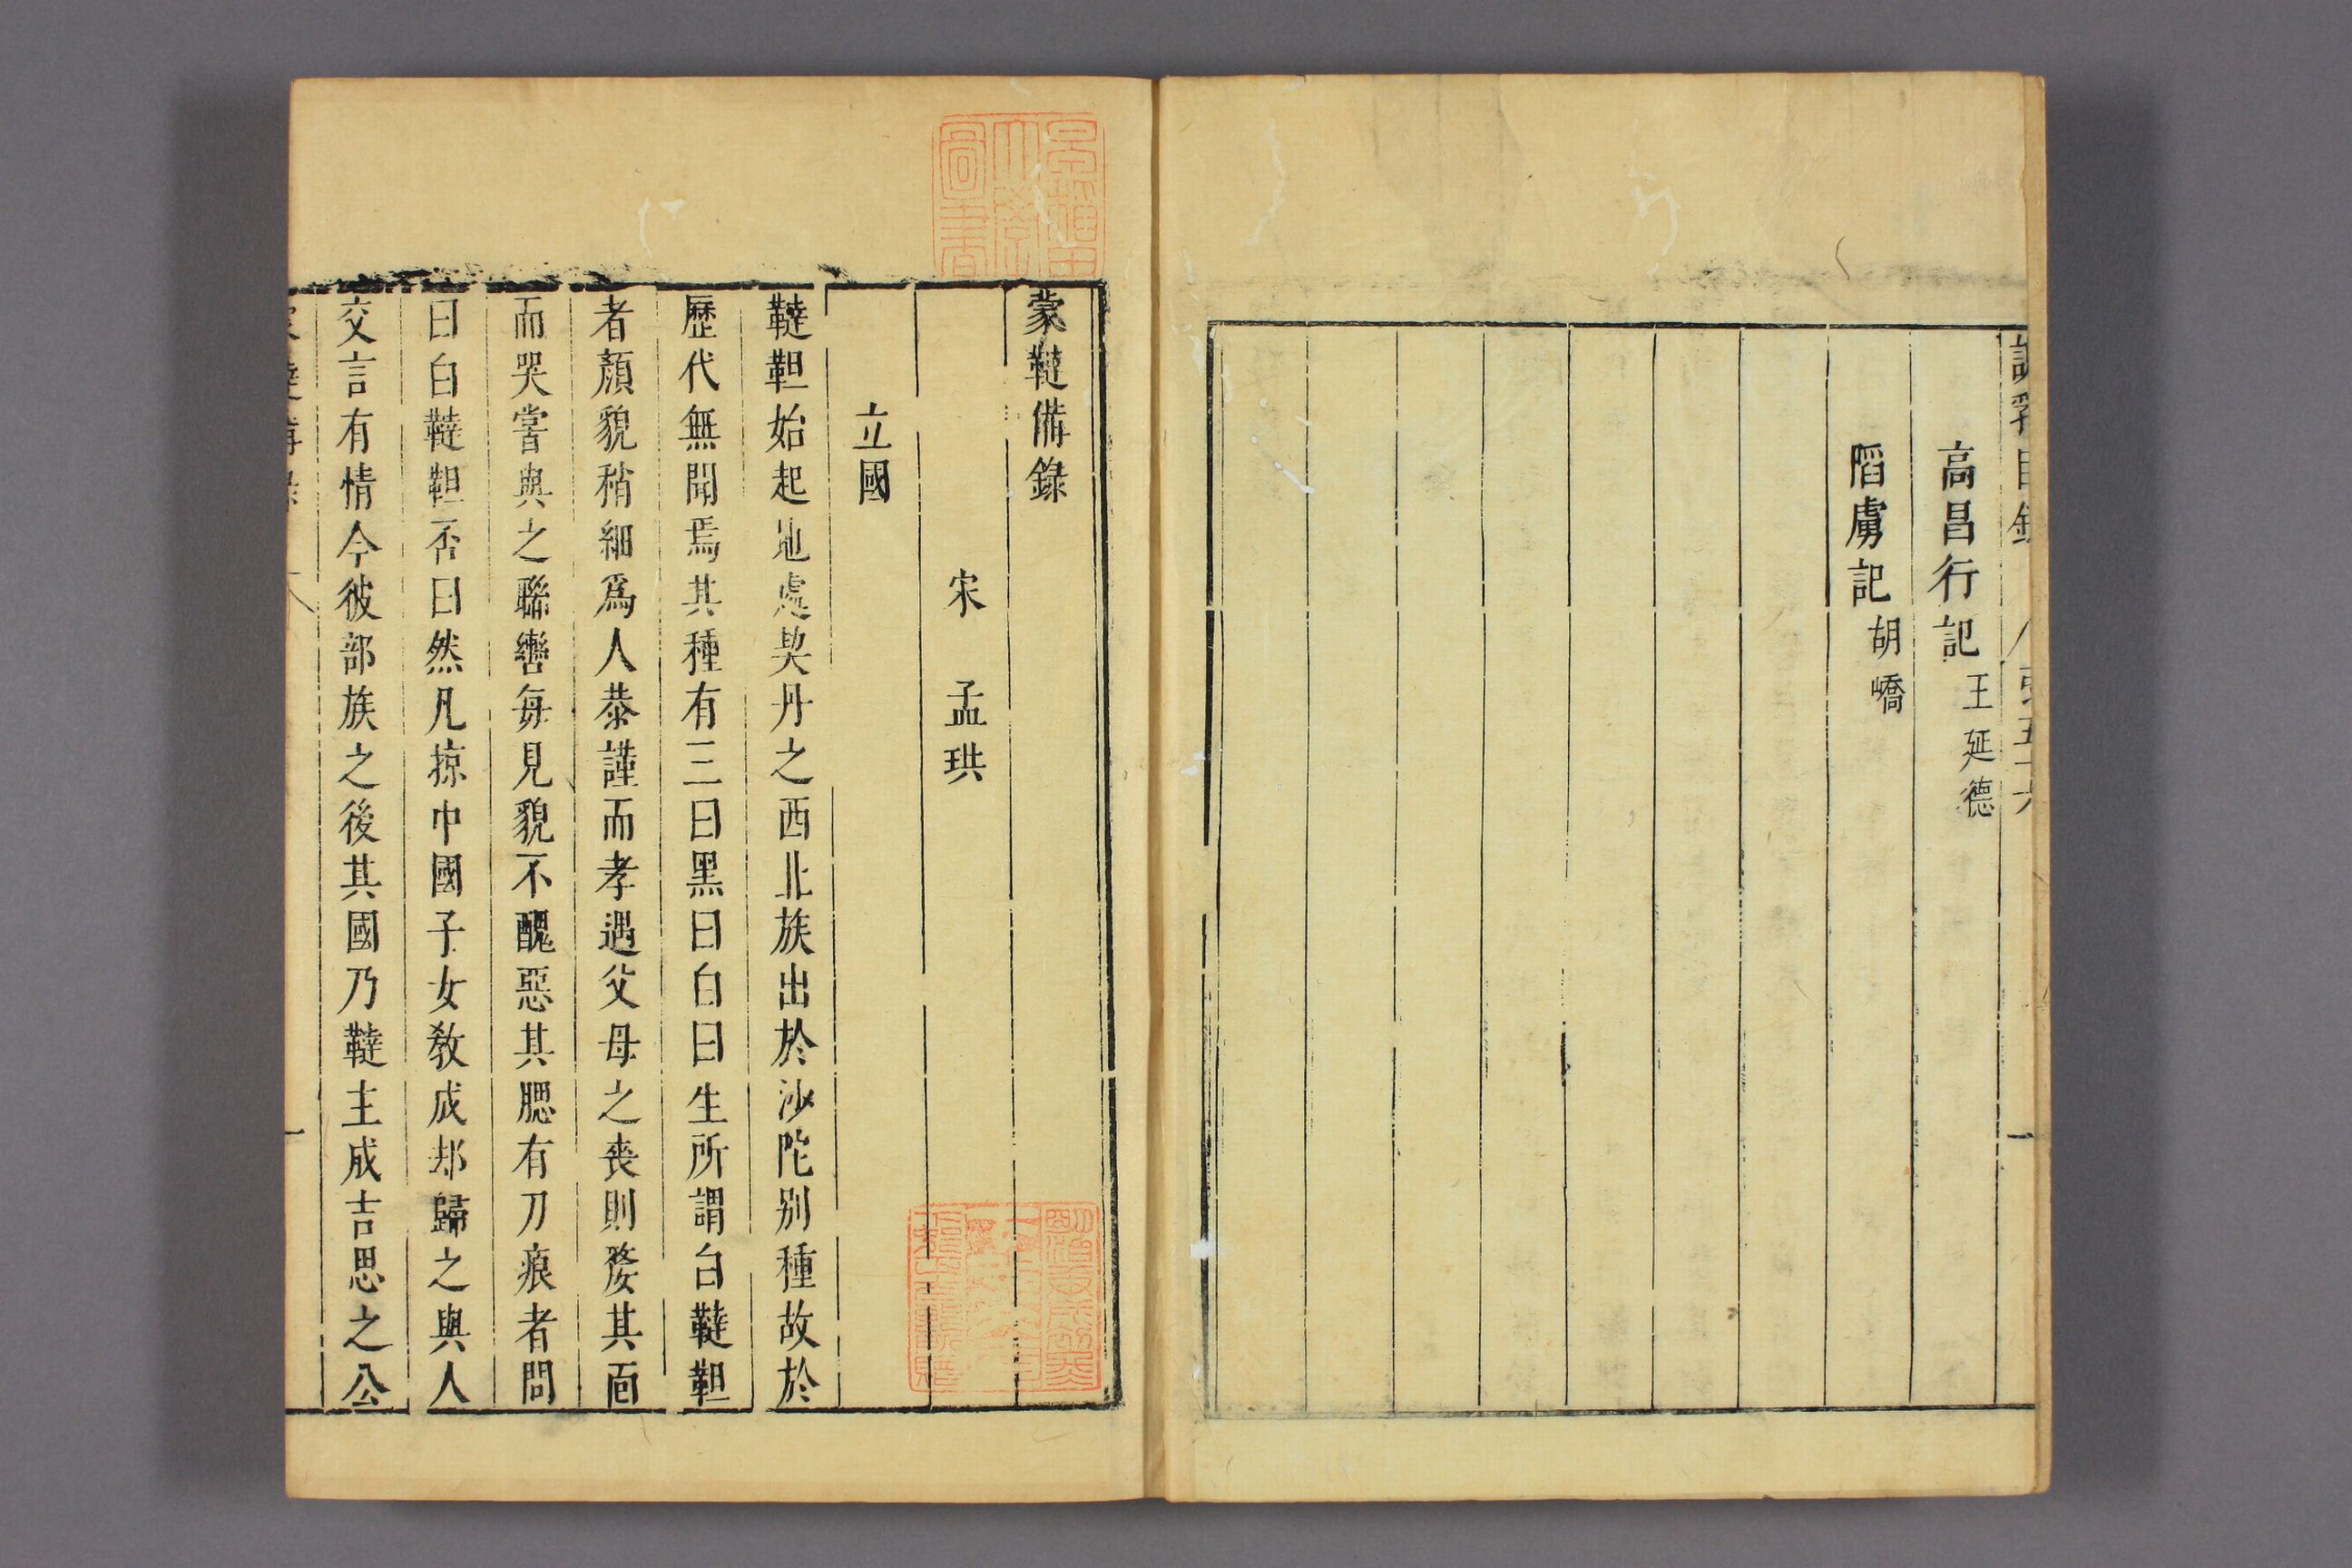 高昌行記 王延德
陷虜記 胡嶠
早稻田大學圖書
蒙韃備錄
宋 孟珙
立國
韃靼始起地處契丹之西北族出於沙陀別種故於
歷代無聞焉其種有三曰黑曰白曰生所謂白韃靼
者顏貌稍細爲人恭謹而孝遇父母之喪則剺其面
而哭嘗與之聯轡每見貌不醜惡其腮有刀痕者問
曰白韃靼否曰然凡掠中國子女教成却歸之與人
交言有情今彼部族之後其國乃韃主成吉思之公